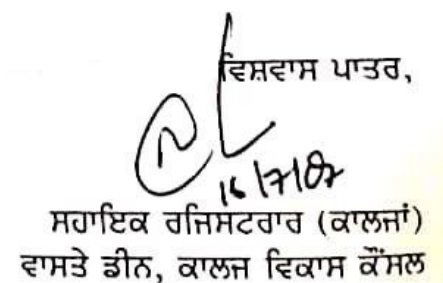 ਵਿਸ਼ਵਾਸ ਪਾਤਰ,
ਸਹਾਇਕ ਰਜਿਸਟਰਾਰ (ਕਾਲਜਾਂ)
ਵਾਸਤੇ ਡੀਨ, ਕਾਲਜ ਵਿਕਾਸ ਕੌਂਸਲ